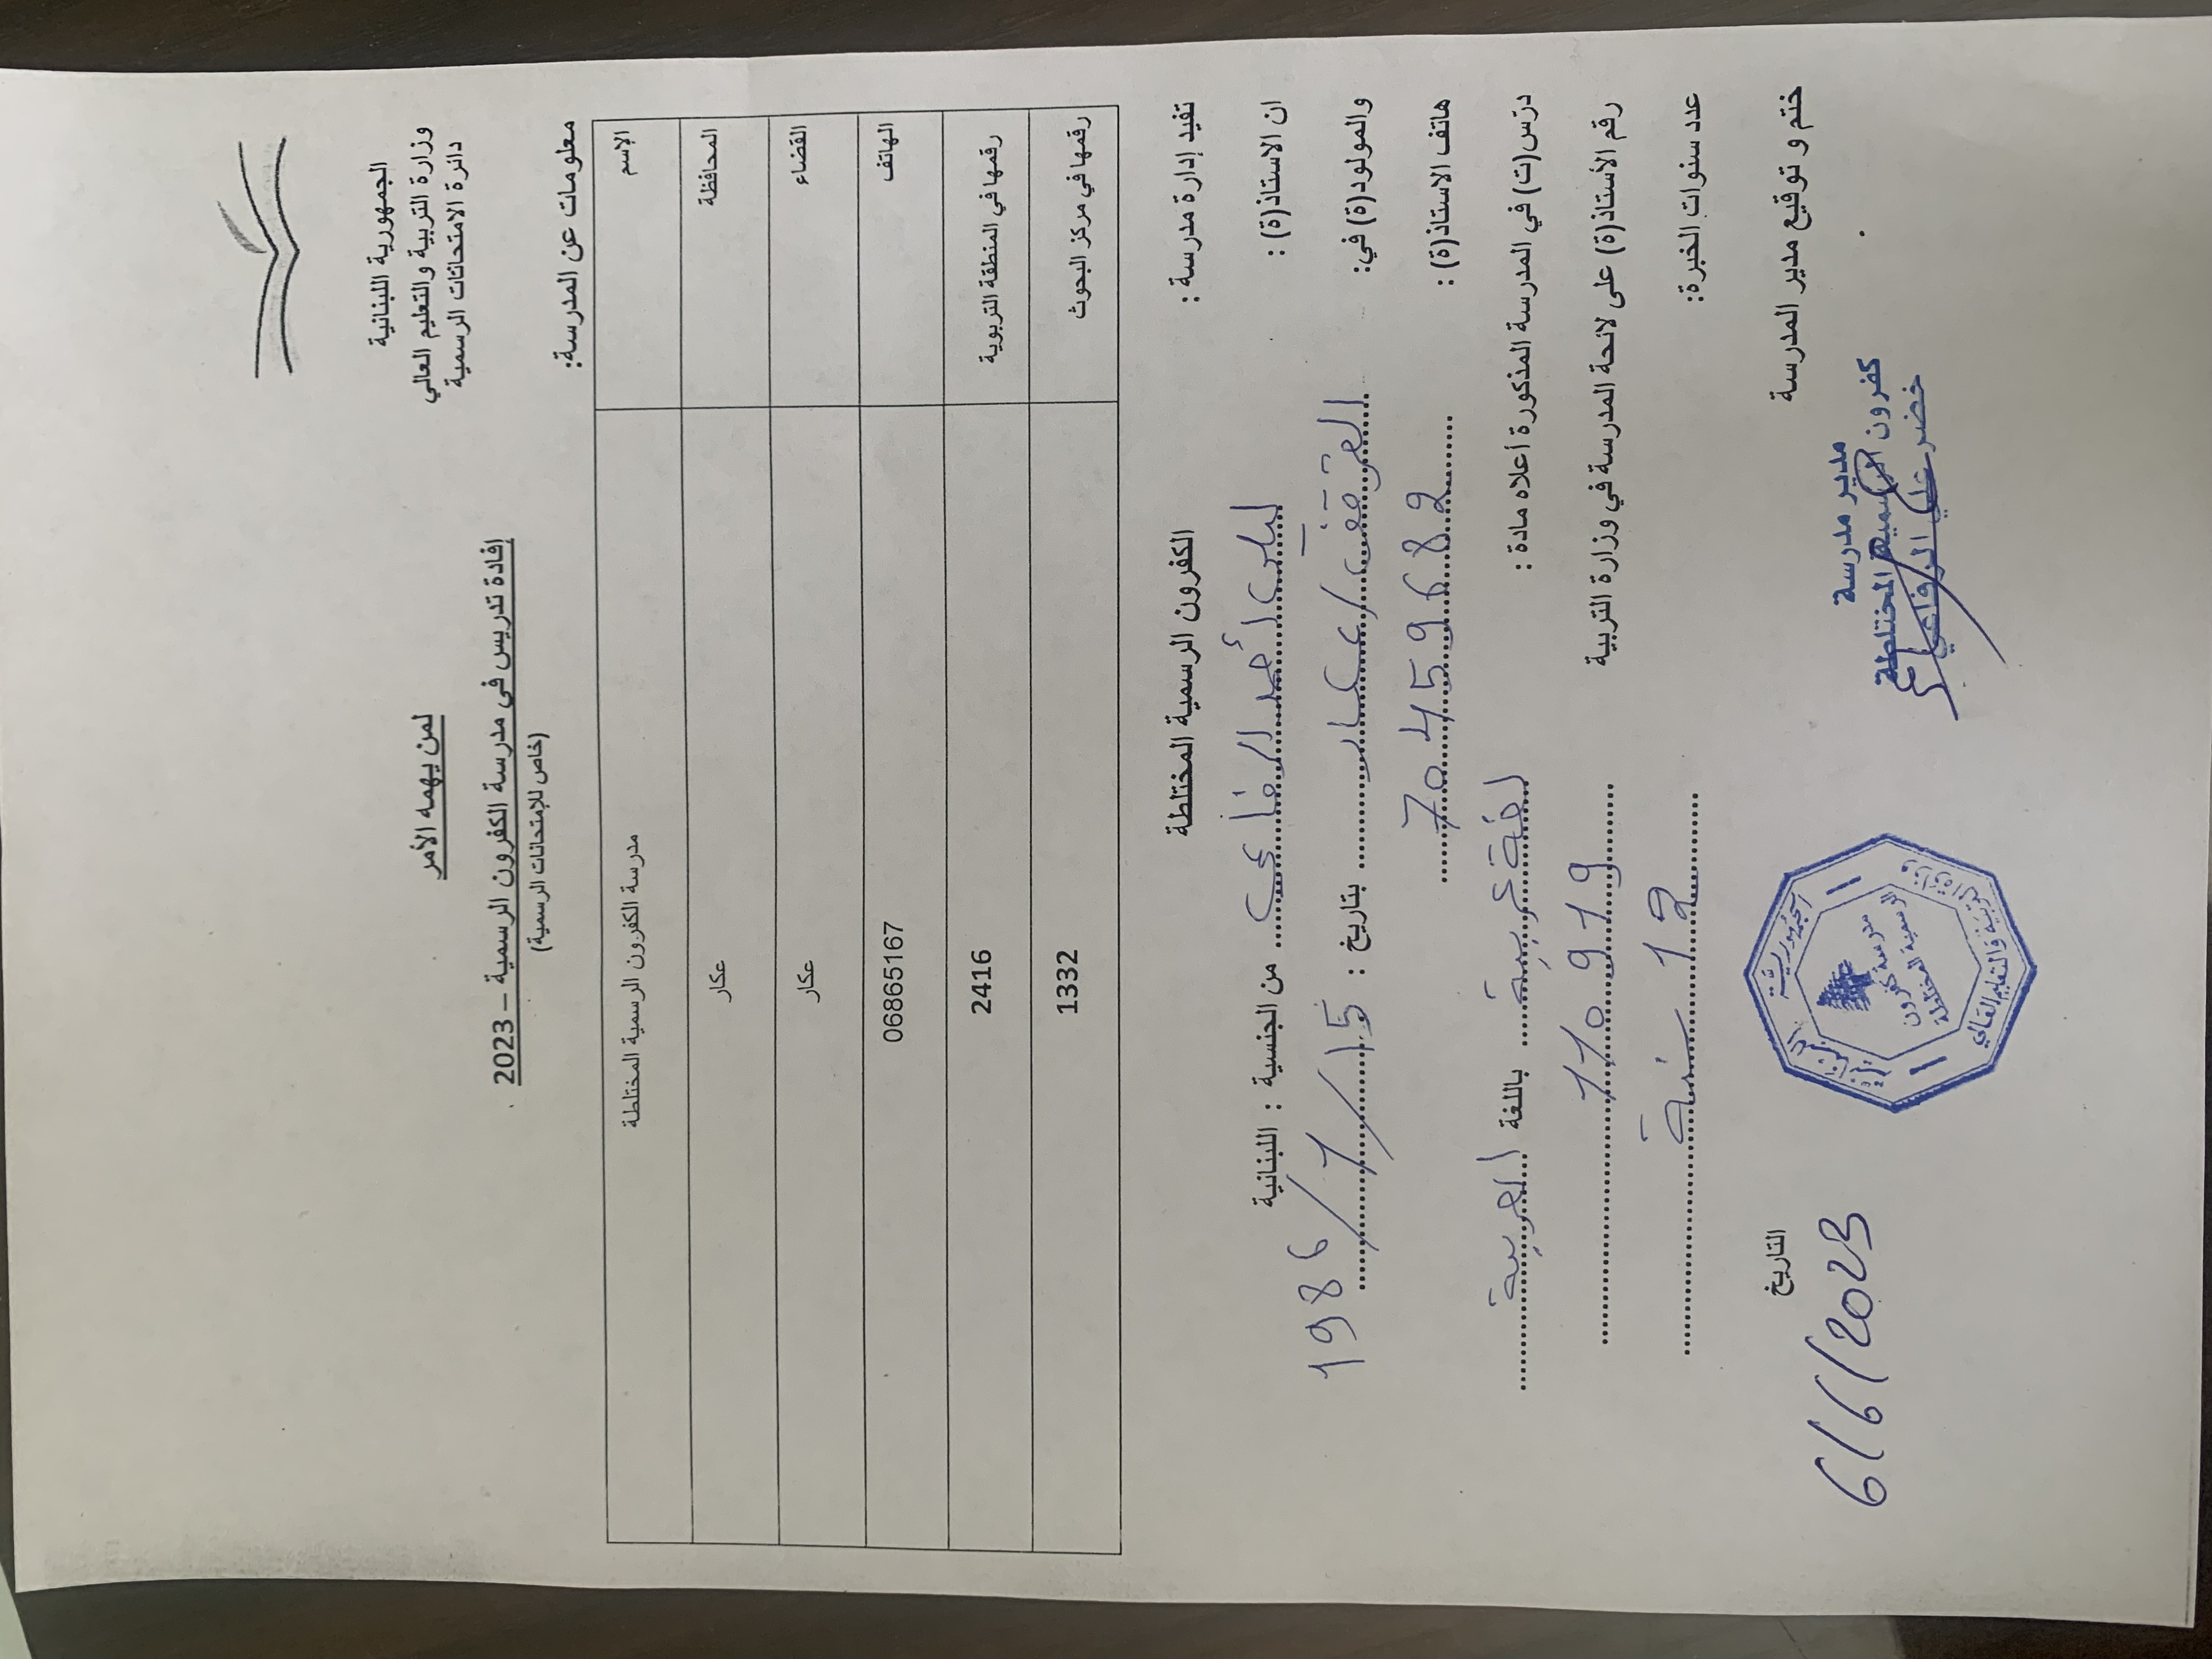 الجمهورية اللبنانية
وزارة التربية والتعليم العالي
دائرة الامتحانات الرسمية
لمن يهمه الأمر
إفادة تدريس في مدرسة الكفرون الرسمية – 2023
(خاص للإمتحانات الرسمية)
معلومات عن المدرسة:
الإسم مدرسة الكفرون الرسمية المختلطة
المحافظة عكار
القضاء عكار
الهاتف 06865167
رقمها في المنطقة التربوية 2416
رقمها في مركز البحوث 1332
تفيد إدارة مدرسة : الكفرون الرسمية المختلطة
ان الاستاذ(ة) : ليلى أحمد الرفاعي من الجنسية : اللبنانية
والمولود(ة) في: القرقف / عكار بتاريخ : 15/7/1986
هاتف الاستاذ(ة) : 70459682
درّس(ت) في المدرسة المذكورة أعلاه مادة : لغة عربية باللغة العربية
رقم الأستاذ(ة) على لائحة المدرسة في وزارة التربية 110919
عدد سنوات الخبرة: 12 سنة
ختم و توقيع مدير المدرسة التاريخ
6/6/2023
مدير مدرسة
كفرون الرسمية المختلطة
خضر علي الرفاعي
الجمهورية اللبنانية
وزارة التربية والتعليم العالي
مدرسة كفرون
الرسمية المختلطة